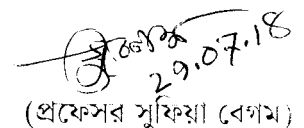 29.07.18
(প্রফেসর সুফিয়া বেগম)